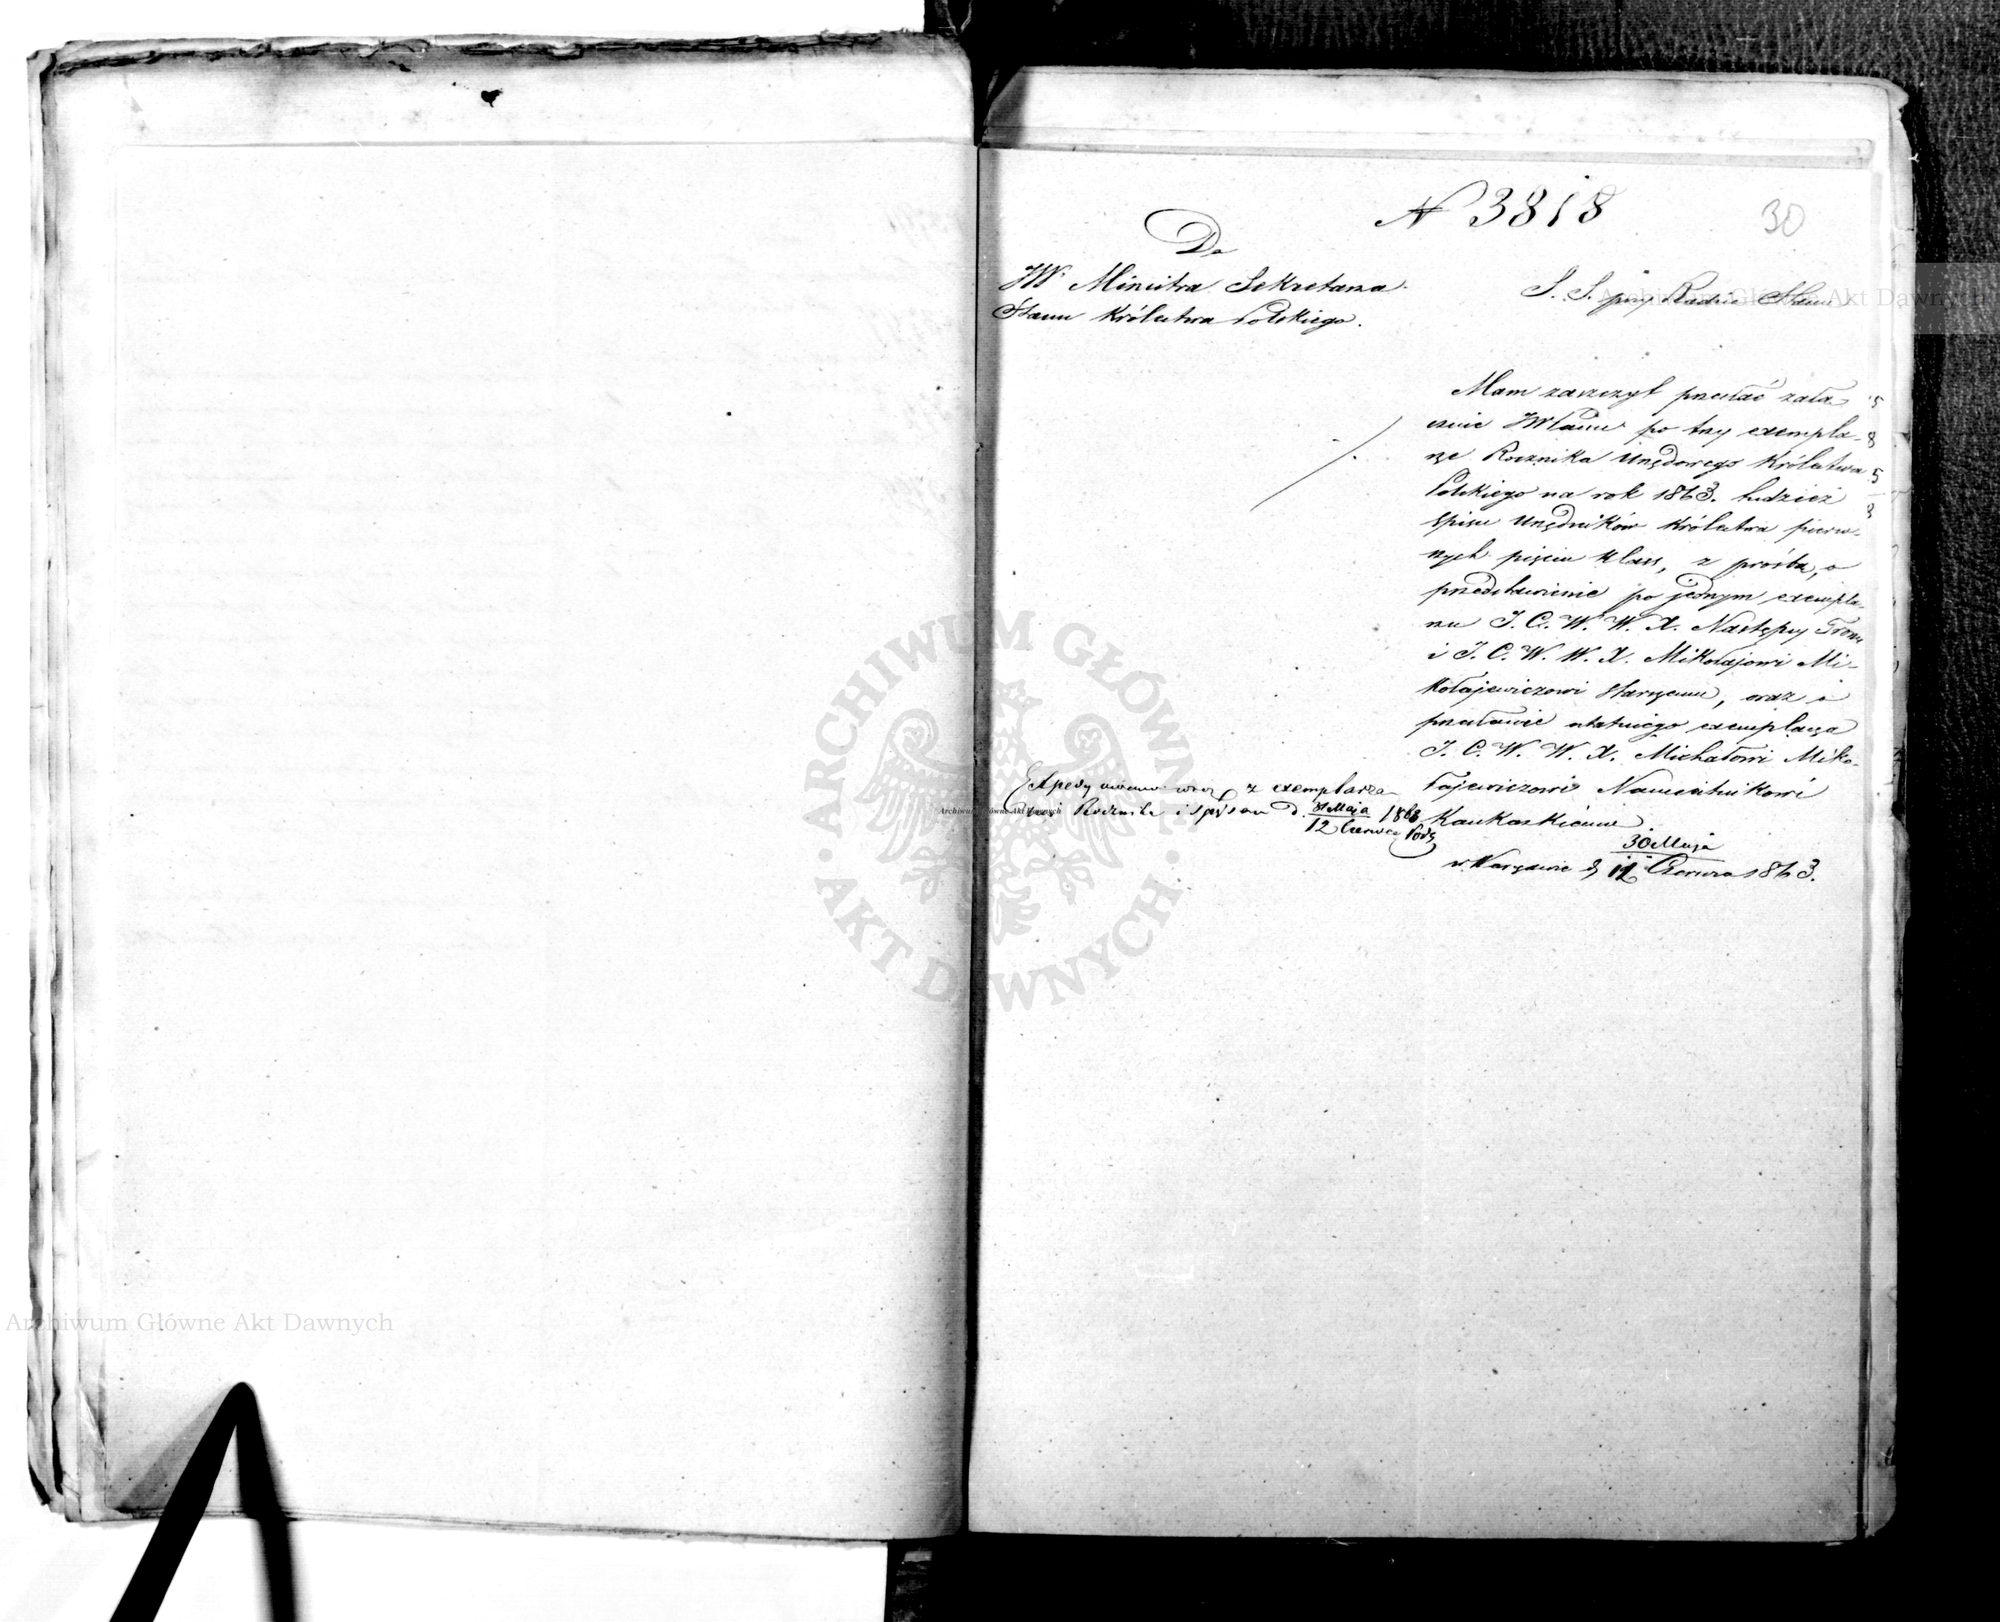 N 3818
30
Do
JW. Ministra Sekretarza
Stanu Królestwa Polskiego.
S. S. przy Radzie Stanu
Mam zaszczyt przesłać załą-
cznie JWPanu po trzy exempla-
rze Rocznika Urzędowego Królestwa
Polskiego na rok 1863. tudzież
spisu Urzędników Królestwa pierw-
szych pięciu klass, z prośbą, o
przedstawienie po jednym exempla-
rzu J. C. W. W. X. Następcy Tronu
i J. C. W. W. X. Mikołajowi Mi-
kołajewiczowi starszemu, oraz o
przesłanie ostatniego exemplarza
J. C. W. W. X. Michałowi Miko-
łajewiczowi Namiestnikowi
Kaukazkiemu
30 Maja
w Warszawie d. 11 Czerwca 1863.
Expedyowano wraz z exemplarza
Rocznika i spisem d. 31 Maja 1863
12 Czerwca
ARCHIWUM GŁÓWNE
AKT DAWNYCH
Archiwum Główne Akt Dawnych
Archiwum Główne Akt Dawnych
Archiwum Główne Akt Dawnych